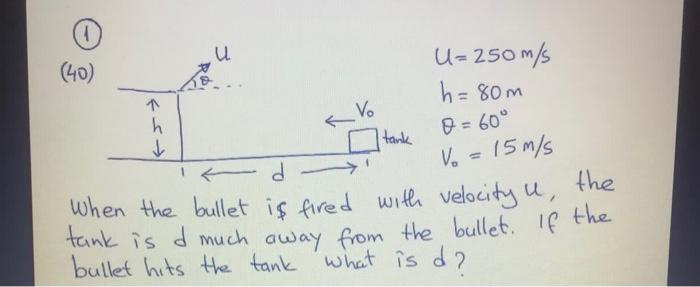 ①
(40)
u
θ
h
V₀
tank
d
u = 250 m/s
h = 80 m
θ = 60°
V₀ = 15 m/s
When the bullet is fired with velocity u, the
tank is d much away from the bullet. If the
bullet hits the tank what is d?